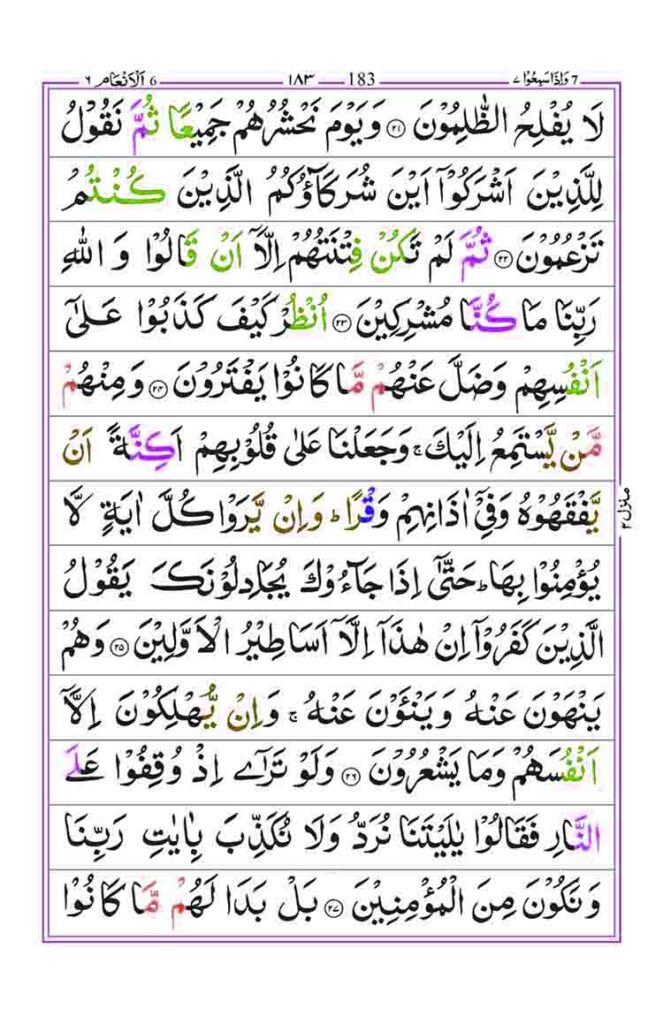 وَاِذَا سَمِعُوْا ٧ 7 183 ١٨٣ اَلْاَنْعَام ٦ 6
لَا يُفْلِحُ الظّٰلِمُوْنَ ۝٢١ وَيَوْمَ نَحْشُرُهُمْ جَمِيْعًا ثُمَّ نَقُوْلُ
لِلَّذِيْنَ اَشْرَكُوْٓا اَيْنَ شُرَكَآؤُكُمُ الَّذِيْنَ كُنْتُمْ
تَزْعُمُوْنَ ۝٢٢ ثُمَّ لَمْ تَكُنْ فِتْنَتُهُمْ اِلَّآ اَنْ قَالُوْا وَ اللّٰهِ
رَبِّنَا مَا كُنَّا مُشْرِكِيْنَ ۝٢٣ اُنْظُرْ كَيْفَ كَذَبُوْا عَلٰٓى
اَنْفُسِهِمْ وَضَلَّ عَنْهُمْ مَّا كَانُوْا يَفْتَرُوْنَ ۝٢٤ وَمِنْهُمْ
مَّنْ يَّسْتَمِعُ اِلَيْكَ ۚ وَجَعَلْنَا عَلٰى قُلُوْبِهِمْ اَكِنَّةً اَنْ
يَّفْقَهُوْهُ وَفِيْٓ اٰذَانِهِمْ وَقْرًا ؕ وَاِنْ يَّرَوْا كُلَّ اٰيَةٍ لَّا
يُؤْمِنُوْا بِهَا ؕ حَتّٰٓى اِذَا جَآءُوْكَ يُجَادِلُوْنَكَ يَقُوْلُ
الَّذِيْنَ كَفَرُوْٓا اِنْ هٰذَآ اِلَّآ اَسَاطِيْرُ الْاَوَّلِيْنَ ۝٢٥ وَهُمْ
يَنْهَوْنَ عَنْهُ وَيَنْـَٔوْنَ عَنْهُ ۚ وَاِنْ يُّهْلِكُوْنَ اِلَّآ
اَنْفُسَهُمْ وَمَا يَشْعُرُوْنَ ۝٢٦ وَلَوْ تَرٰٓى اِذْ وُقِفُوْا عَلَى
النَّارِ فَقَالُوْا يٰلَيْتَنَا نُرَدُّ وَلَا نُكَذِّبَ بِاٰيٰتِ رَبِّنَا
وَنَكُوْنَ مِنَ الْمُؤْمِنِيْنَ ۝٢٧ بَلْ بَدَا لَهُمْ مَّا كَانُوْا
منزل ٢